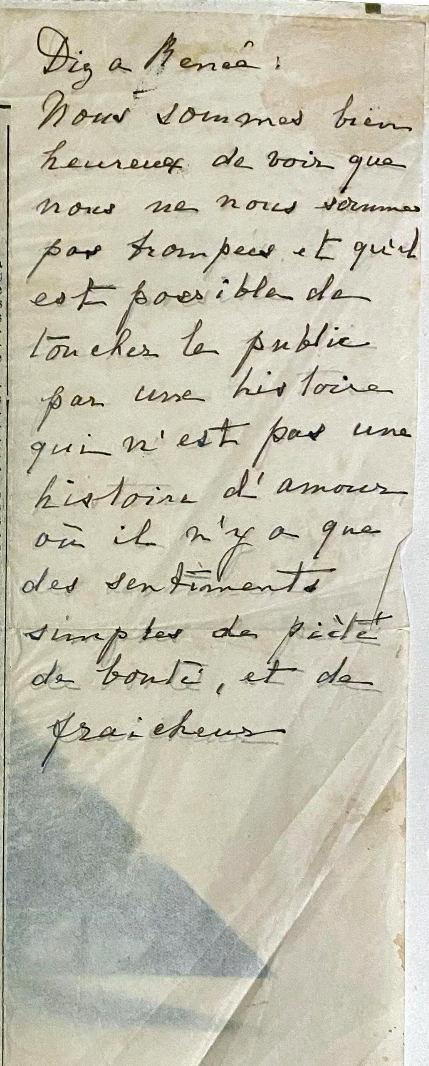 Diz a Renée :
Nous sommes bien
heureux de voir que
nous ne nous sommes
pas trompées et qu'il
est possible de
toucher le public
par une histoire
qui n'est pas une
histoire d'amour
où il n'y a que
des sentiments
simples de piété
de bonté, et de
fraicheur